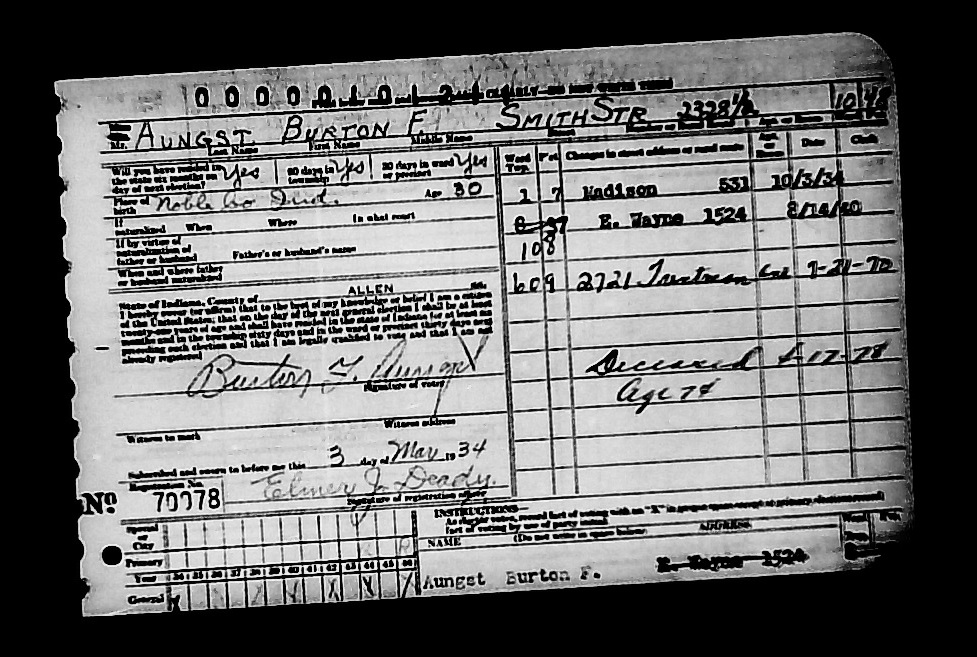 0 0 0 0 0 1 0 2
Mr. AUNGST BURTON F. SMITH STR 2328 1/2 10 48
Last Name First Name Middle Name
Will you have resided in the state six months on day of next election? Yes 60 days in township? Yes 30 days in ward or precinct Yes
Place of birth Noble Co Ind. Age 30
If naturalized When Where In what court
If by virtue of naturalization of father or husband Father's or husband's name
When and where father or husband naturalized
Ward Twp. Pct. Changes in street address or rural route Apt. or Room Date Clerk
1 7 Madison 531 10/3/34
E. Wayne 1524 8/14/40
10 8
609 2721 Trentman Ave 7-21-70
Deceased 17-78
age 74
State of Indiana, County of ALLEN ss:
I hereby swear (or affirm) that to the best of my knowledge or belief I am a citizen
of the United States; that on the day of the next general election I shall be at least
twenty-one years of age and shall have resided in the state of Indiana for at least six
months and in the township sixty days and in the ward or precinct thirty days next
preceding such election and that I am legally qualified to vote and that I am not
already registered
Burton F. Aungst
Signature of voter
Witness to mark Witness address
Subscribed and sworn to before me this 3 day of May 1934
Registration No.
No 70078 Elmer J. Deady.
Signature of registration officer
INSTRUCTIONS—
As elector votes, record fact of voting with an "X" in proper space except at primary elections record
fact of voting by use of party initial. (Do not write in space below)
NAME ADDRESS
Special or City
Primary R
Year 34 35 36 37 38 39 40 41 42 43 44 45 46
General X X X X X
Aungst Burton F. E. Wayne 1524